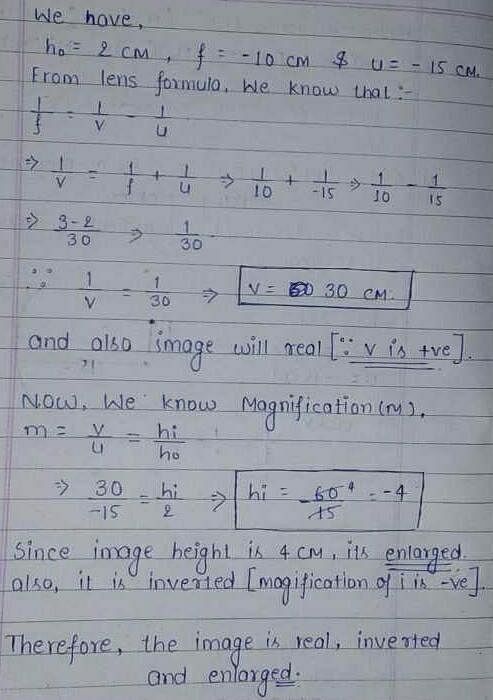 We have,
ho = 2 cm, f = -10 cm & u = -15 cm.
From lens formula, We know that :-
1/f = 1/v - 1/u
⇒ 1/v = 1/f + 1/u ⇒ 1/10 + 1/-15 ⇒ 1/10 - 1/15
⇒ 3-2/30 ⇒ 1/30
∴ 1/v = 1/30 ⇒ v = 30 cm.
and also image will real [∵ v is +ve].
Now, We know Magnification(m),
m = v/u = hi/ho
⇒ 30/-15 = hi/2 ⇒ hi = -60/15 4 = -4
Since image height is 4 cm, its enlarged.
also, it is inverted [magification of i is -ve].
Therefore, the image is real, inverted
and enlarged.